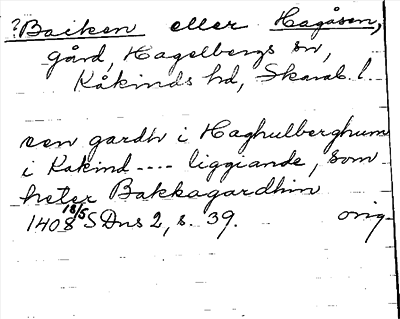 ?Backen eller Hagåsen,
gård, Hagelbergs sn,
Kåkinds hd, Skarab. l.
een gardh i Haghulberghum
i Kakind .... liggiande, som
heter Bakkagardhin
1408 18/5 SDns 2, s. 39. orig.